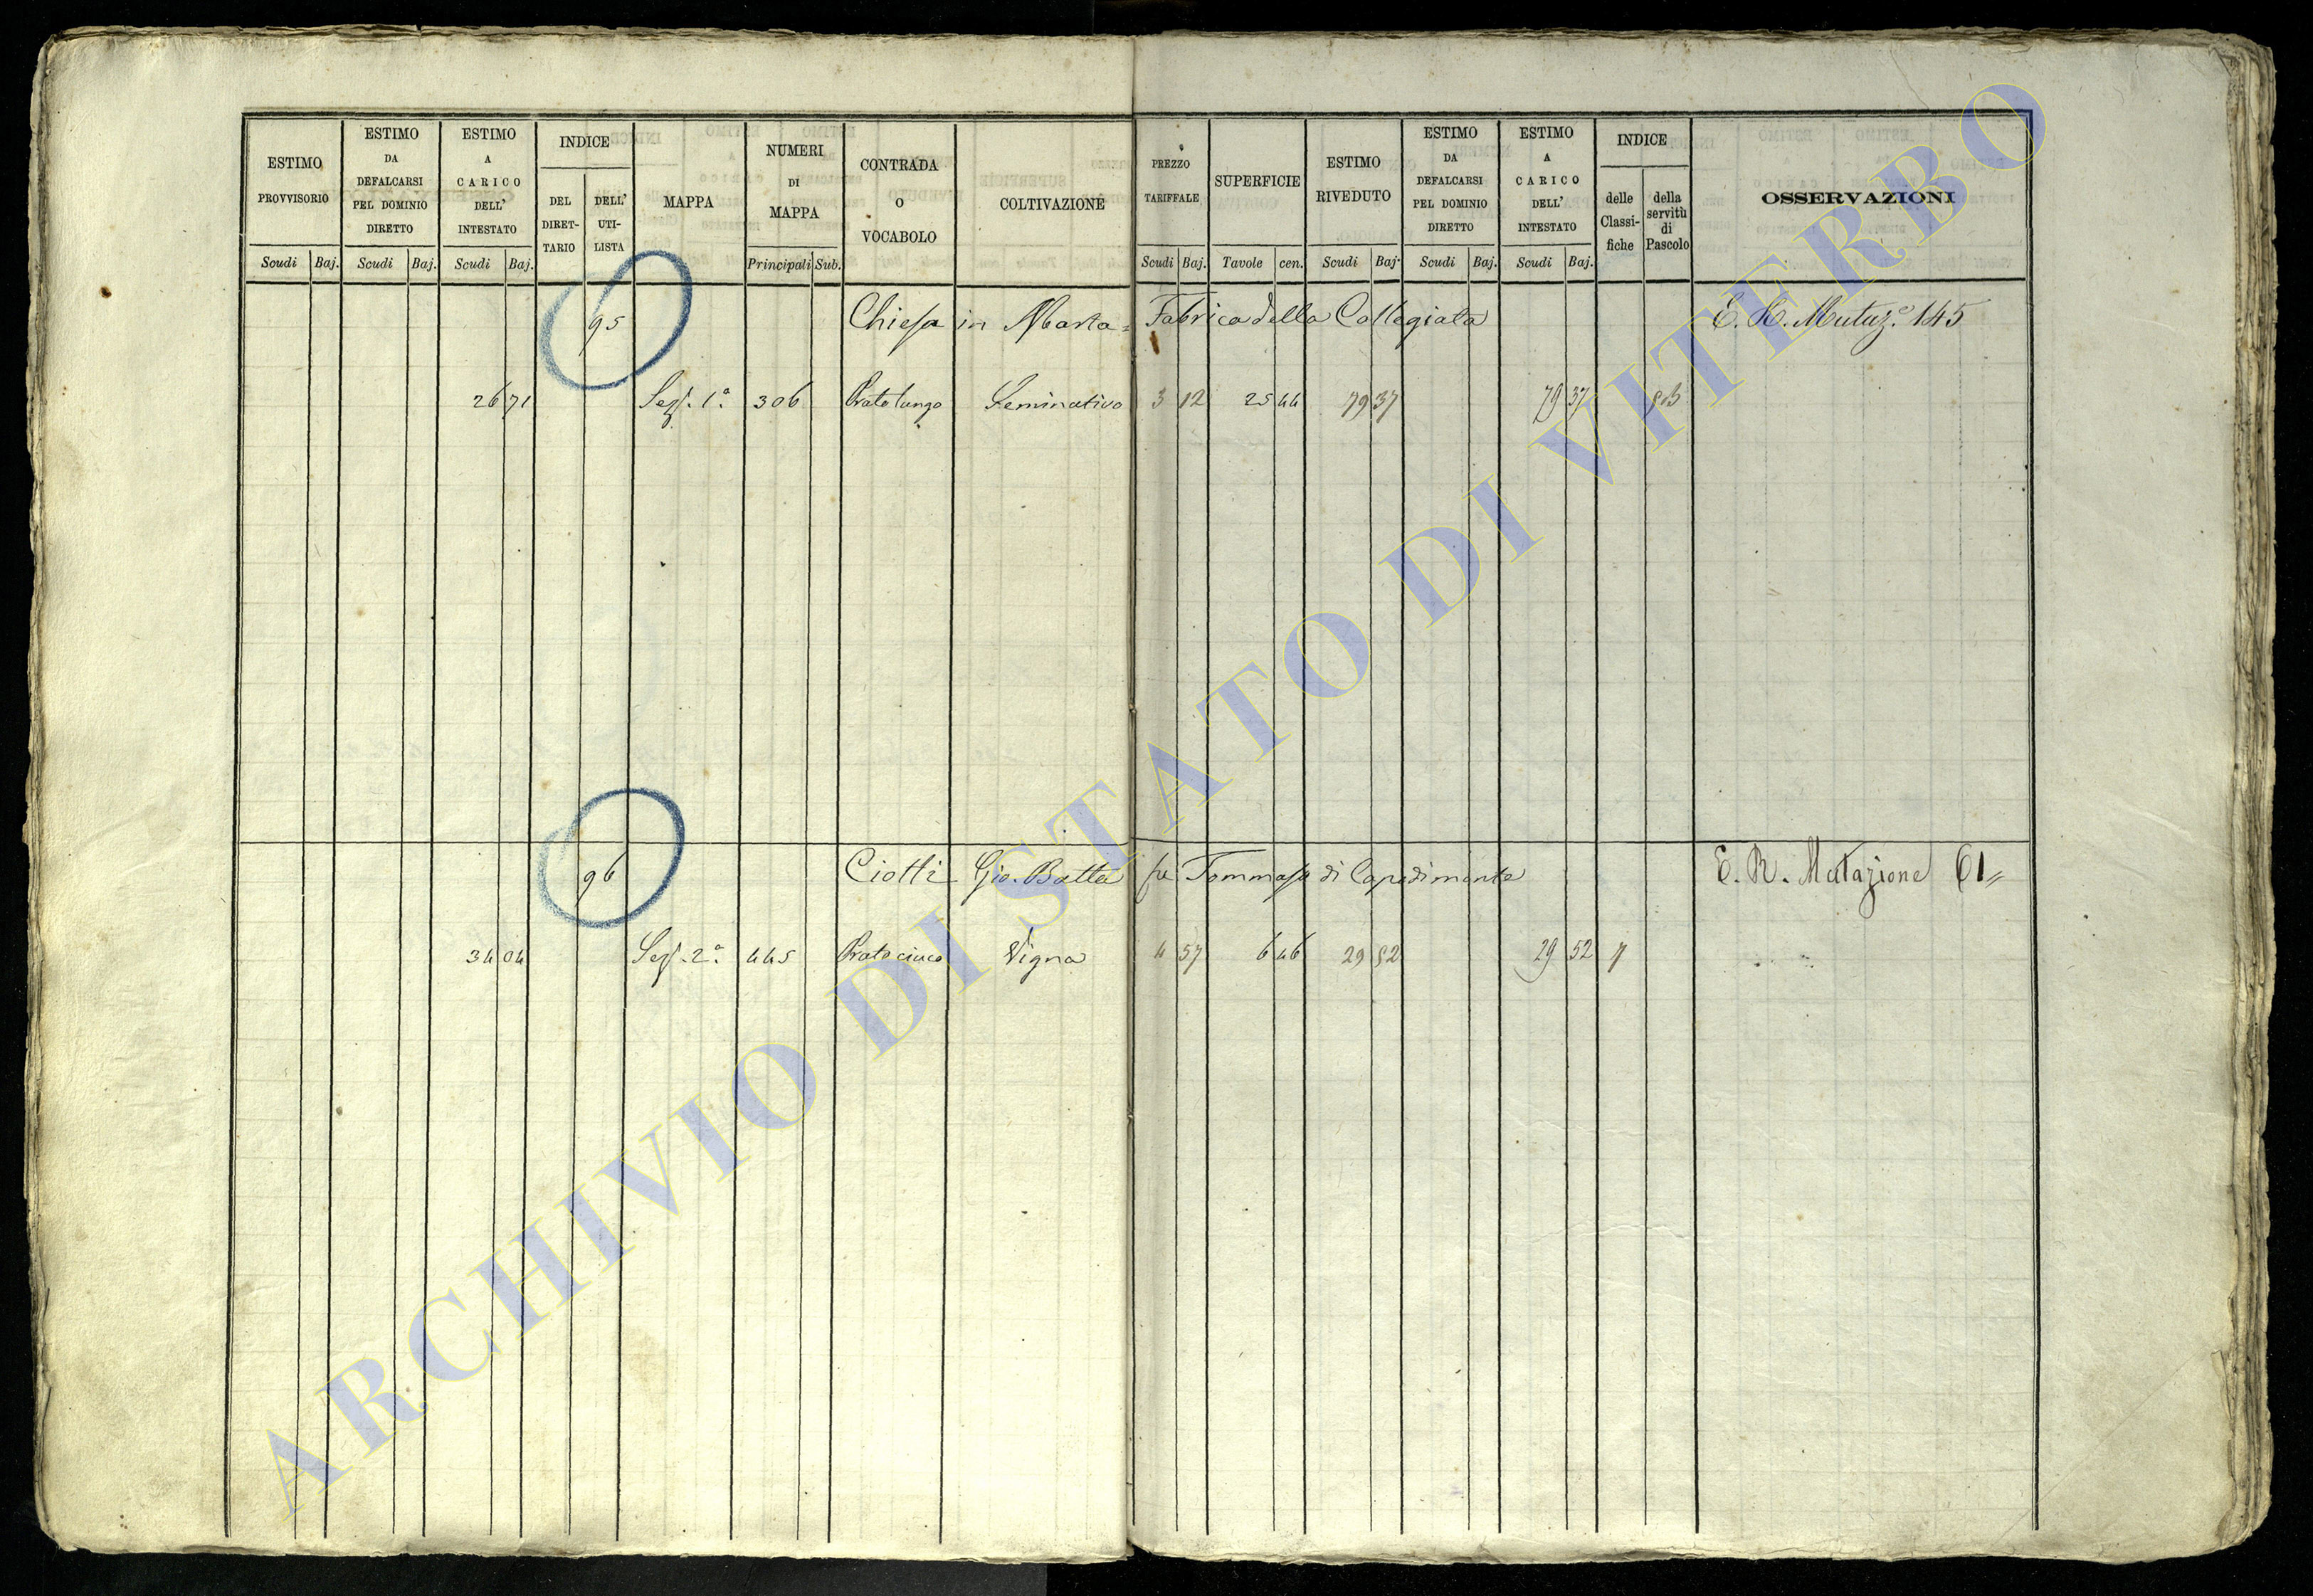 ESTIMO PROVVISORIO
ESTIMO DA DEFALCARSI PEL DOMINIO DIRETTO
ESTIMO A CARICO DELL' INTESTATO
INDICE
DEL DIRET-TARIO
DELL' UTI-LISTA
MAPPA
NUMERI DI MAPPA
CONTRADA O VOCABOLO
COLTIVAZIONE
PREZZO TARIFFALE
SUPERFICIE
ESTIMO RIVEDUTO
ESTIMO DA DEFALCARSI PEL DOMINIO DIRETTO
ESTIMO A CARICO DELL' INTESTATO
INDICE
delle Classi-fiche
della servitù di Pascolo
OSSERVAZIONI
Scudi Baj. Scudi Baj. Scudi Baj. Principali Sub. Scudi Baj. Tavole cen. Scudi Baj. Scudi Baj. Scudi Baj.
95 Chiesa in Marta = Fabrica della Collegiata E. R. Mutaz.e 145
26 71 Sez. 1a. 306 Prato lungo Seminativo 3 12 25 44 79 37 79 37
96 Ciotti Gio. Batta fu Tommaso di Capodimonte E. R. Mutazione 61 "
34 04 Sez. 2a. 445 Vigna 4 57 6 46 29 52 29 52
ARCHIVIO DI STATO DI VITERBO